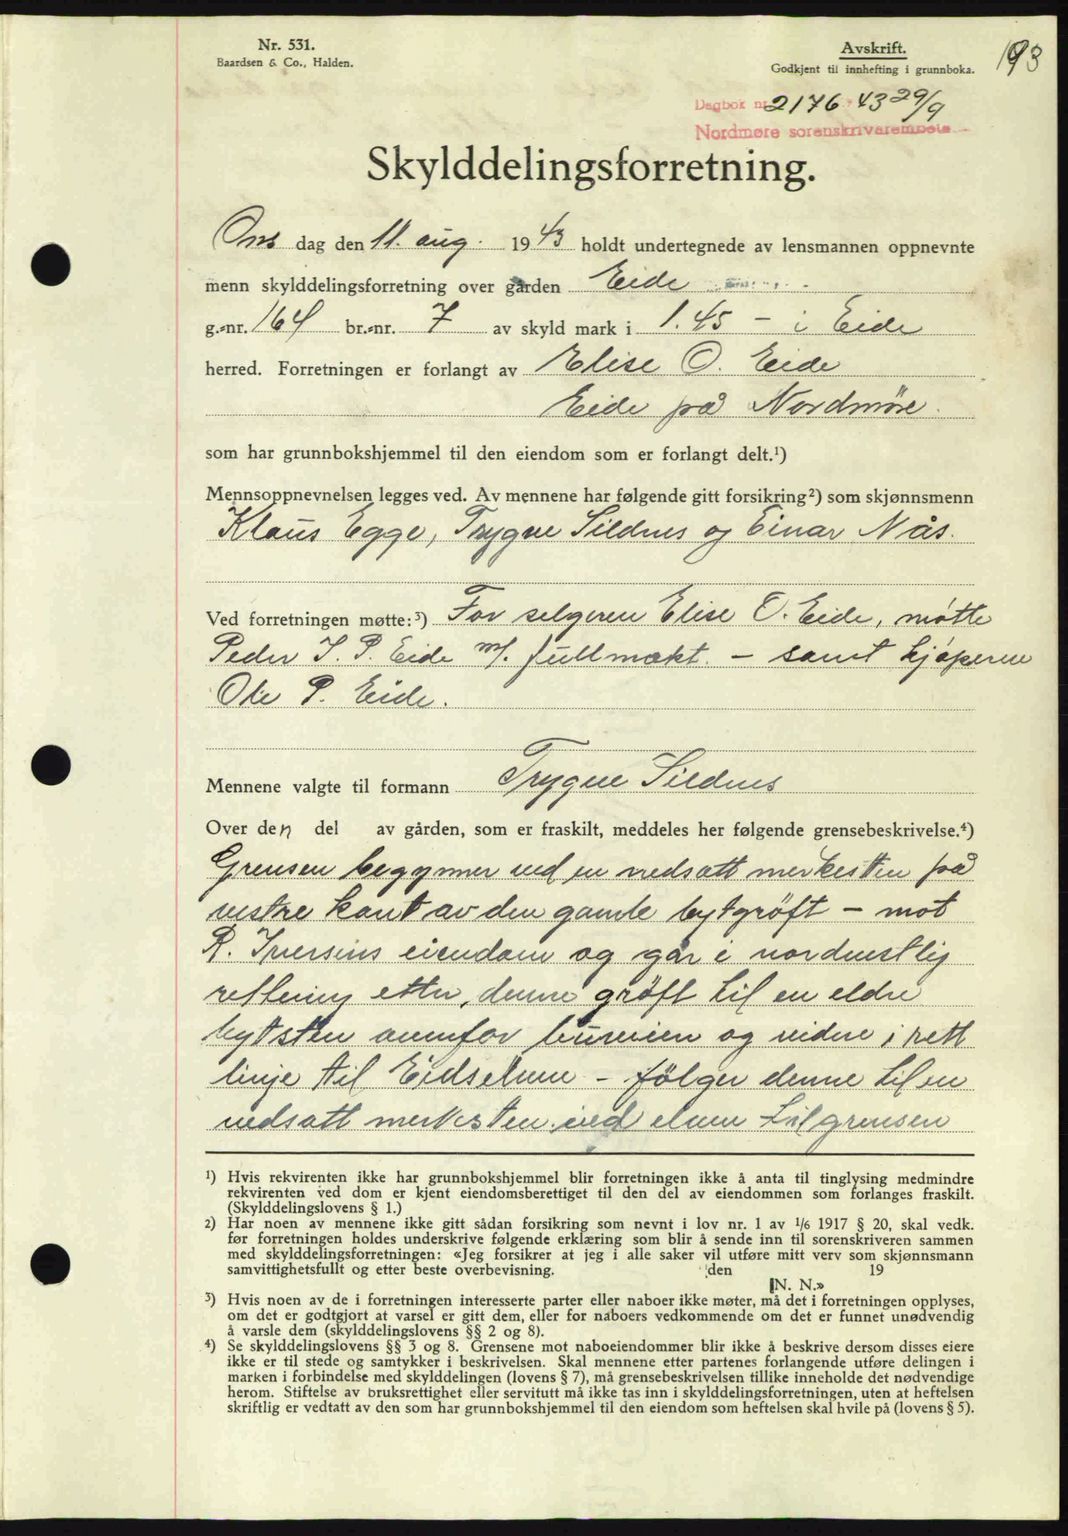 Nr. 531.
Baardsen & Co., Halden.
Avskrift.
Godkjent til innhefting i grunnboka.
193
Dagbok nr. 2176 - 43 29/9
Nordmøre sorenskriverembete
Skylddelingsforretning.
Ons dag den 11. aug. 1943 holdt undertegnede av lensmannen oppnevnte
menn skylddelingsforretning over gården Eide
g.-nr. 164 br.-nr. 7 av skyld mark i 1.45 - i Eide
herred. Forretningen er forlangt av Elise O. Eide
Eide på Nordmöre.
som har grunnbokshjemmel til den eiendom som er forlangt delt.¹)
Mennsoppnevnelsen legges ved. Av mennene har følgende gitt forsikring²) som skjønnsmenn
Klaus Egge, Trygve Sildnes og Einar Nås.
Ved forretningen møtte:³) For selgeren Elise O. Eide, møtte
Peder I. P. Eide m/. fullmakt. - samt kjøperen
Ole P. Eide.
Mennene valgte til formann Trygve Sildnes
Over den del av gården, som er fraskilt, meddeles her følgende grensebeskrivelse.⁴)
Grensen begynner ved en nedsatt merkesten på
vestre kant av den gamle bytgrøft - mot
R. Iversens eiendom og går i nordvestlig
retning etter denne grøft til en eldre
bytsten ovenfor bureien og videre i rett
linje til Eidselven - følger denne til en
nedsatt merkesten ved elven til grensen
¹) Hvis rekvirenten ikke har grunnbokshjemmel blir forretningen ikke å anta til tinglysing medmindre
rekvirenten ved dom er kjent eiendomsberettiget til den del av eiendommen som forlanges fraskilt.
(Skylddelingslovens § 1.)
²) Har noen av mennene ikke gitt sådan forsikring som nevnt i lov nr. 1 av 1/6 1917 § 20, skal vedk.
før forretningen holdes underskrive følgende erklæring som blir å sende inn til sorenskriveren sammen
med skylddelingsforretningen: «Jeg forsikrer at jeg i alle saker vil utføre mitt verv som skjønnsmann
samvittighetsfullt og etter beste overbevisning. den 19
N. N.»
³) Hvis noen av de i forretningen interesserte parter eller naboer ikke møter, må det i forretningen opplyses,
om det er godtgjort at varsel er gitt dem, eller for naboers vedkommende om det er funnet unødvendig
å varsle dem (skylddelingslovens §§ 2 og 8).
⁴) Se skylddelingslovens §§ 3 og 8. Grensene mot naboeiendommer blir ikke å beskrive dersom disses eiere
ikke er til stede og samtykker i beskrivelsen. Skal mennene etter partenes forlangende utføre delingen i
marken i forbindelse med skylddelingen (lovens § 7), må grensebeskrivelsen tillike inneholde det nødvendige
herom. Stiftelse av bruksrettighet eller servitutt må ikke tas inn i skylddelingsforretningen, uten at heftelsen
skriftlig er vedtatt av den som har grunnbokshjemmel til den eiendom som heftelsen skal hvile på (lovens § 5).